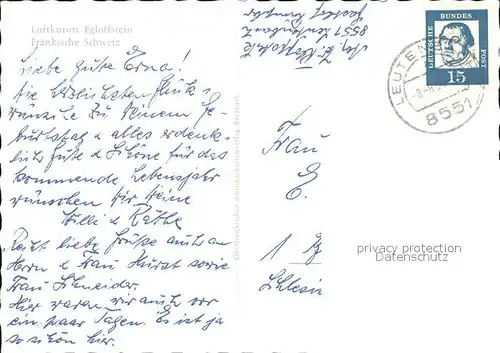 Luftkurort Egloffstein
Fränkische Schweiz
Liebe gute Erna!
Die herzlichsten Glück-
wünsche zu Deinem Ge-
burtstag & alles erdenk-
lich Gute & Schöne für das
kommende Lebensjahr
wünschen Dir Deine
Willi & Käthe
Recht liebe Grüße auch an
Herrn & Frau Hurst sowie
Frau Schneider.
Hier waren wir auch vor
ein paar Tagen. Es ist ja
so schön hier.
8551
DEUTSCHE BUNDES POST
15
LEUTEN
8551
Frau
E.
1 B
privacy protection
Datenschutz